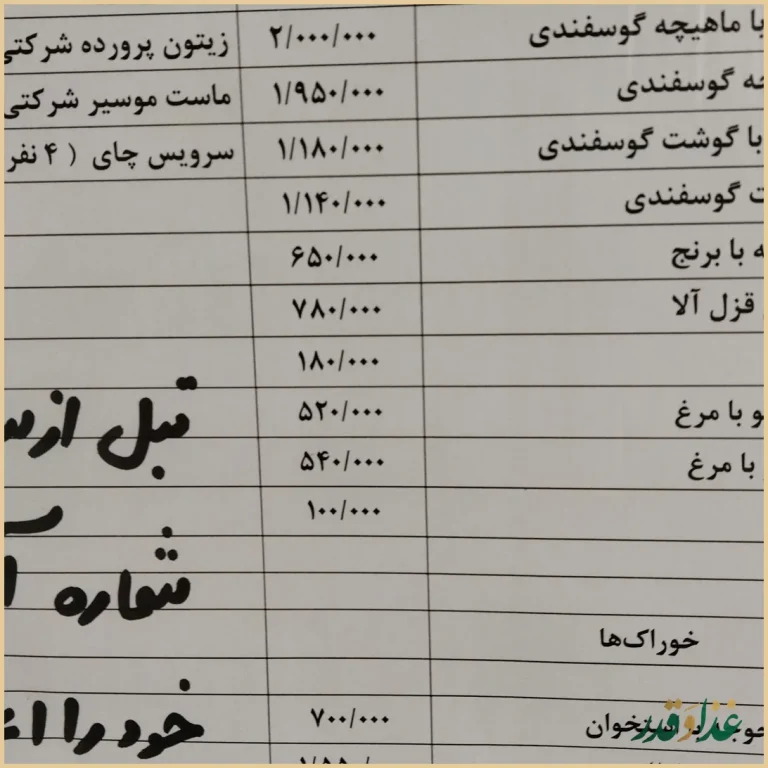 با ماهیچه گوسفندی ۲/۰۰۰/۰۰۰ زیتون پرورده شرکتی
گوسفندی ۱/۹۵۰/۰۰۰ ماست موسیر شرکتی
با گوشت گوسفندی ۱/۱۸۰/۰۰۰ سرویس چای ( ۴ نفر
گوسفندی ۱/۱۴۰/۰۰۰
با برنج ۶۵۰/۰۰۰
قزل آلا ۷۸۰/۰۰۰
۱۸۰/۰۰۰
با مرغ ۵۲۰/۰۰۰
با مرغ ۵۴۰/۰۰۰
۱۰۰/۰۰۰
قبل از
شماره
خوراک‌ها
۷۰۰/۰۰۰
خود را
غذا و قدر